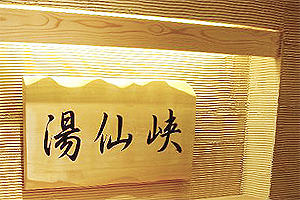 湯仙峡